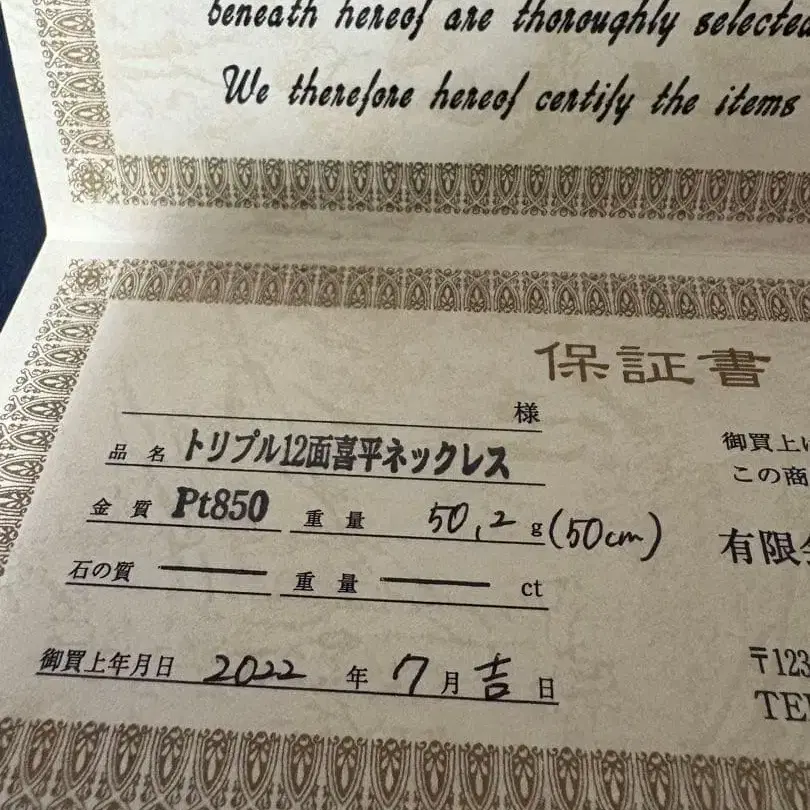 beneath hereof are thoroughly selected
We therefore hereof certify the items
保証書
様
品名 トリプル12面喜平ネックレス
金質 Pt850 重量 50.2 g (50cm)
石の質 ── 重量 ── ct
御買上年月日 2022 年 7 月 吉 日
御買上
この商
有限
〒123
TE